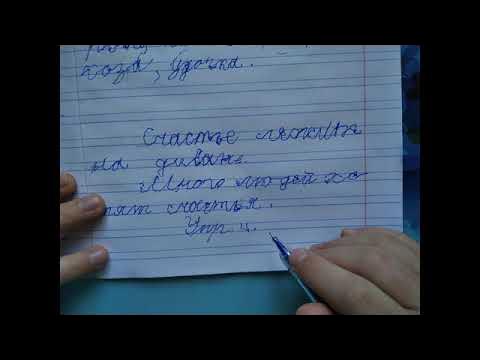 коза, удочка.
Счастье лежит
на диване
Много людей хо
тят счастья.
Упр 4.